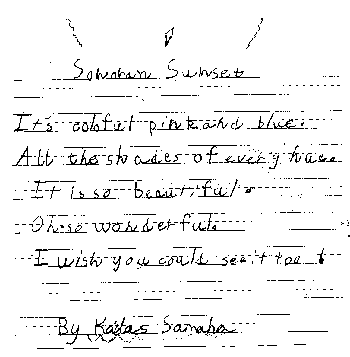 Sonoran Sunset
It's colorful pink and blue.
All the shades of every hue.
It is so beautiful
Oh so wonderful.
I wish you could see it too
By Samaha